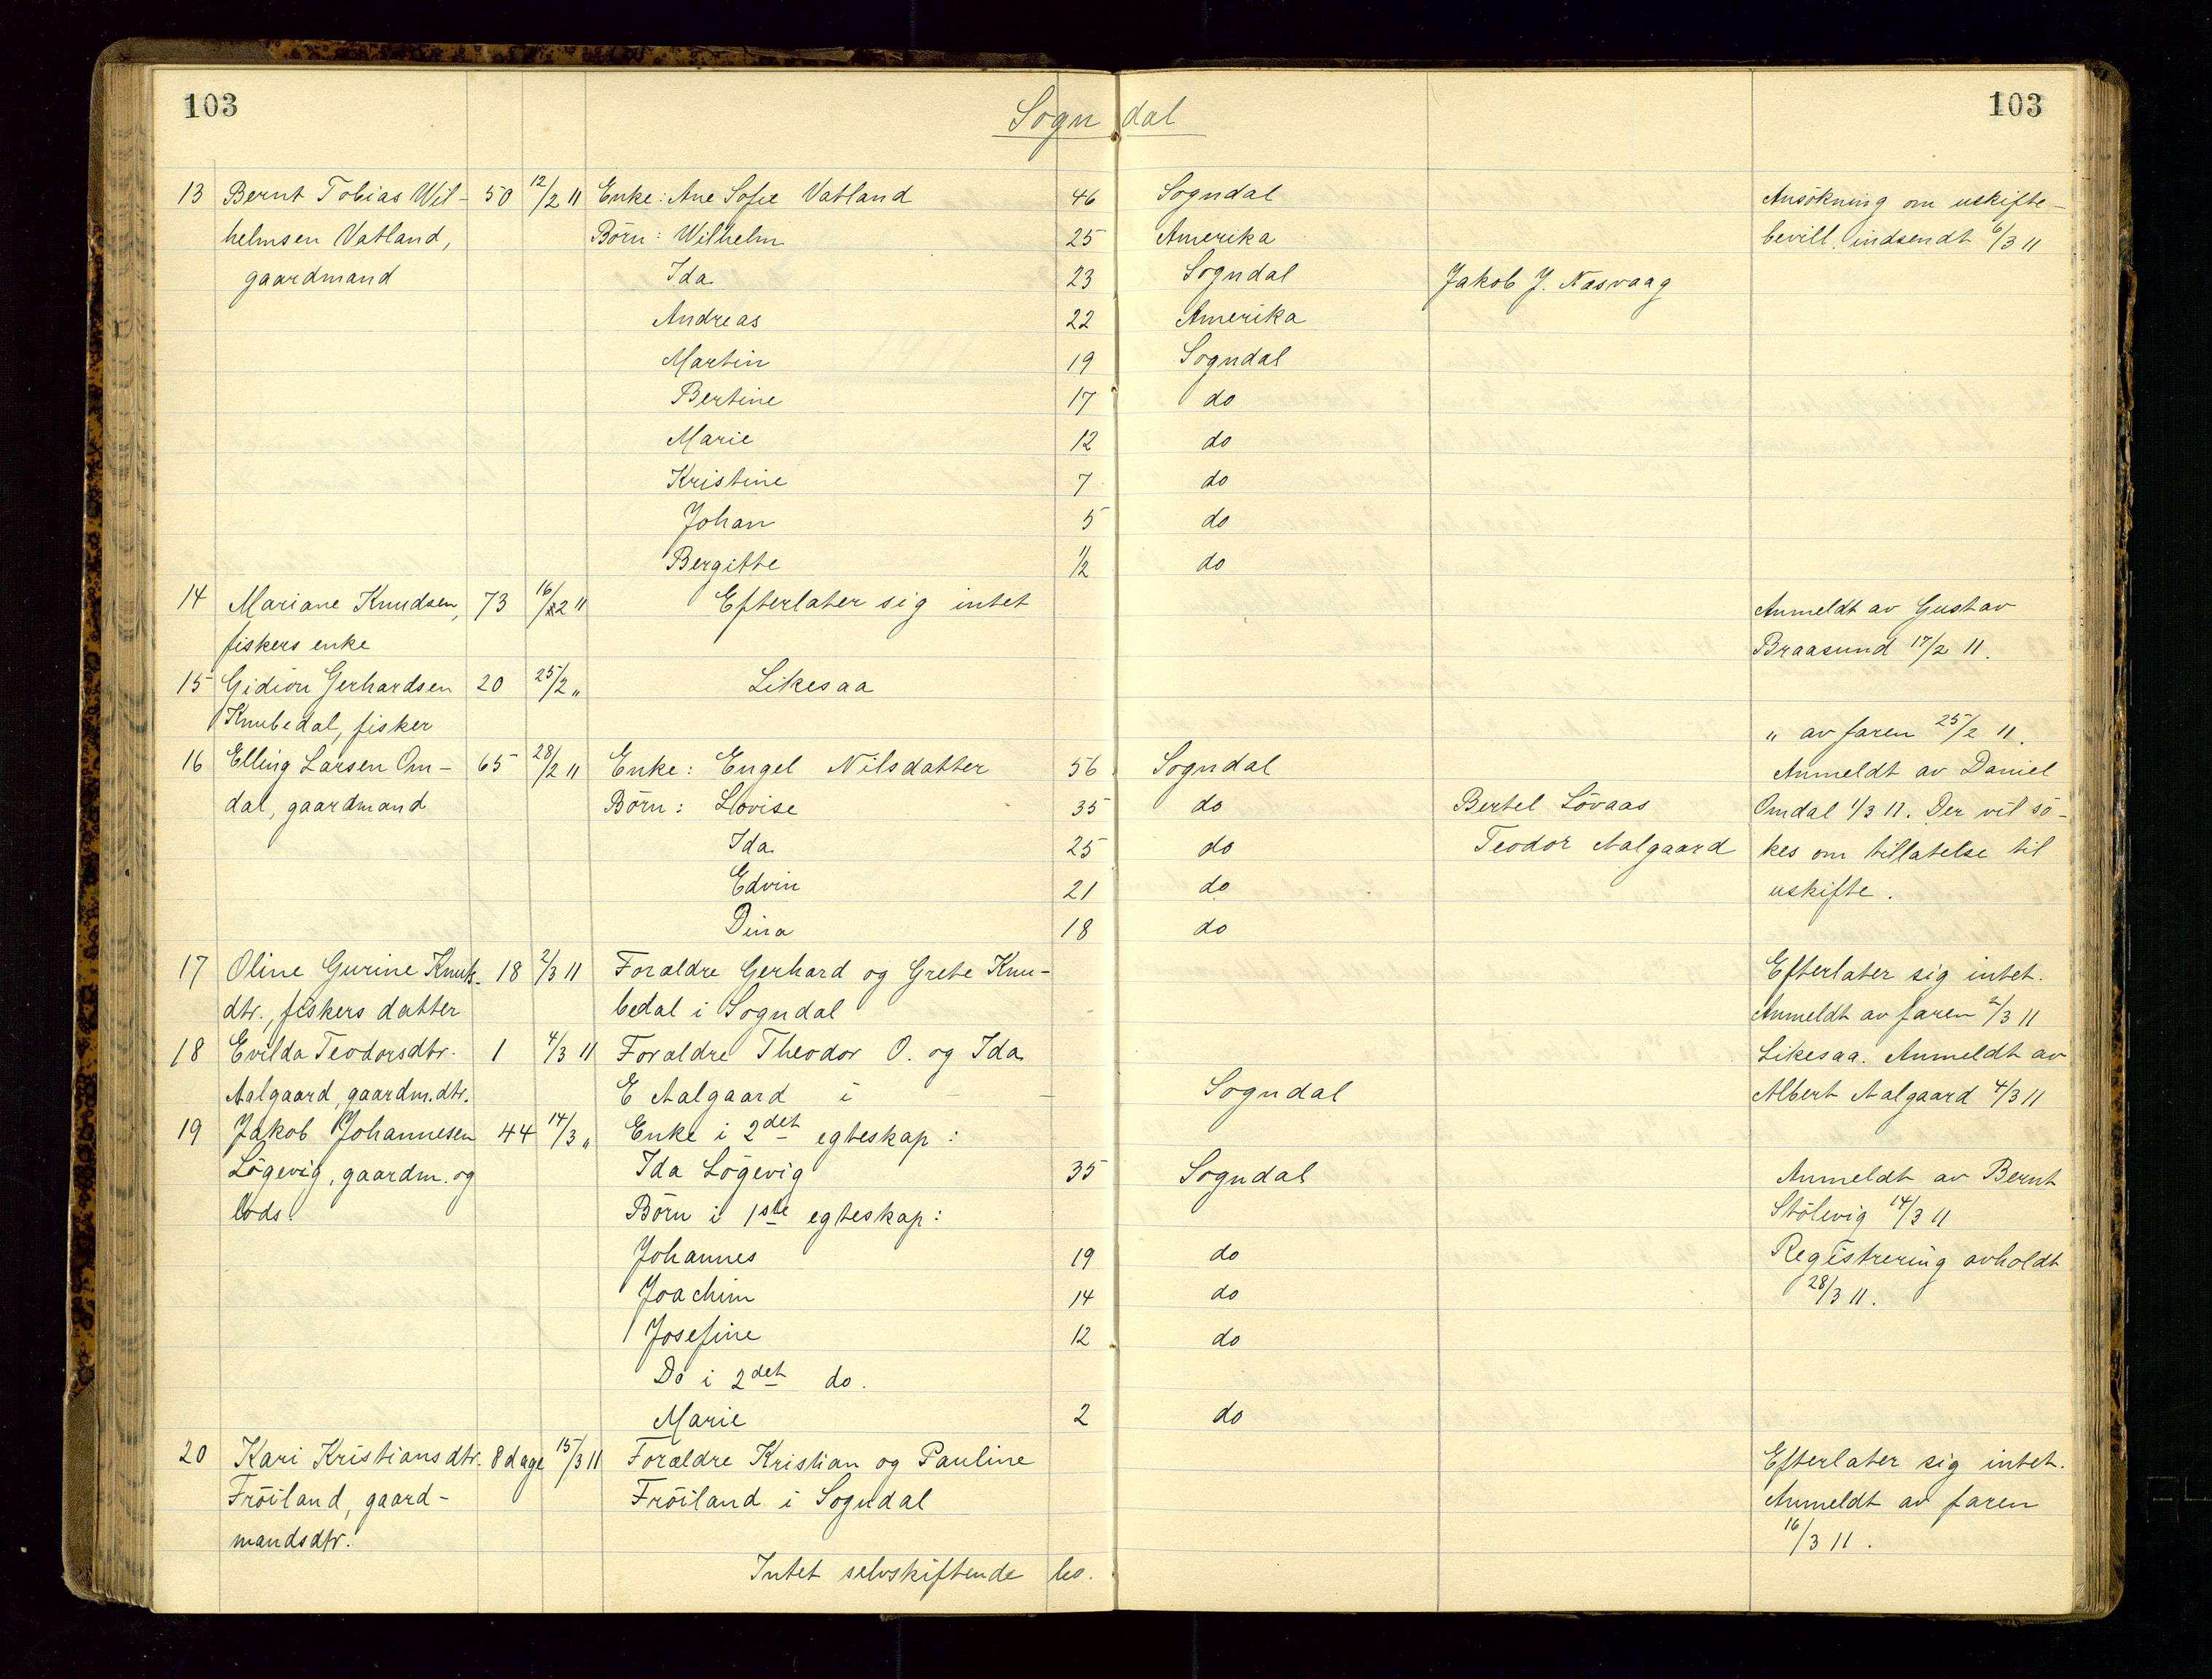 103 103
Sogndal
13 Bernt Tobias Wil- 50 12/2 11 Enke: Ane Sofie Vatland 46 Sogndal Ansökning om uskifte-
helmsen Vatland, Börn: Wilhelm 25 Amerika bevill. indsendt 6/3 11
gaardmand Ida 23 Sogndal Jakob J. Nesvaag
Andreas 22 Amerika
Martin 19 Sogndal
Bertine 17 do
Marie 12 do
Kristine 7 do
Johan 5 do
Bergitte 1/2 do
14 Mariane Knudsen, 73 16/2 11 Efterlater sig intet Anmeldt av Gustav
fiskers enke Braasund 17/2 11.
15 Gidion Gerhardsen 20 25/2 „ Likesaa
Knubedal, fisker „ av faren 25/2 11.
16 Elling Larsen Om- 65 28/2 11 Enke: Engel Nilsdatter 56 Sogndal Anmeldt av Daniel
dal, gaardmand Börn: Lovise 35 do Bertel Lövaas Omdal 1/3 11. Der vil sö-
Ida 25 do Teodor Aalgaard kes om tillatelse til
Edvin 21 do uskifte.
Dina 18 do
17 Oline Gurine 18 2/3 11 Forældre Gerhard og Grete Knu- Efterlater sig intet.
dtr., fiskers datter bedal i Sogndal Anmeldt av faren 2/3 11
18 Evilda Teodorsdtr. 1 4/3 11 Forældre Theodor O. og Ida Likesaa. Anmeldt av
Aalgaard, gaardm.dtr. E Aalgaard i Sogndal Albert Aalgaard 4/3 11
19 Jakob Johannesen 44 14/3 „ Enke i 2det egteskap:
Lögevig, gaardm. og Ida Lögevig 35 Sogndal Anmeldt av Bernt
lods. Börn i 1ste egteskap: Stölevig 14/3 11
Johannes 19 do Registrering avholdt
Joachim 14 do 28/3 11.
Josefine 12 do
Do i 2det do.
Marie 2 do
20 Kari Kristiansdtr. 8 dage 15/3 11 Forældre Kristian og Pauline Efterlater sig intet.
Fröiland, gaard- Fröiland i Sogndal Anmeldt av faren
mandsdtr. 16/3 11.
Intet selvskiftende bo.